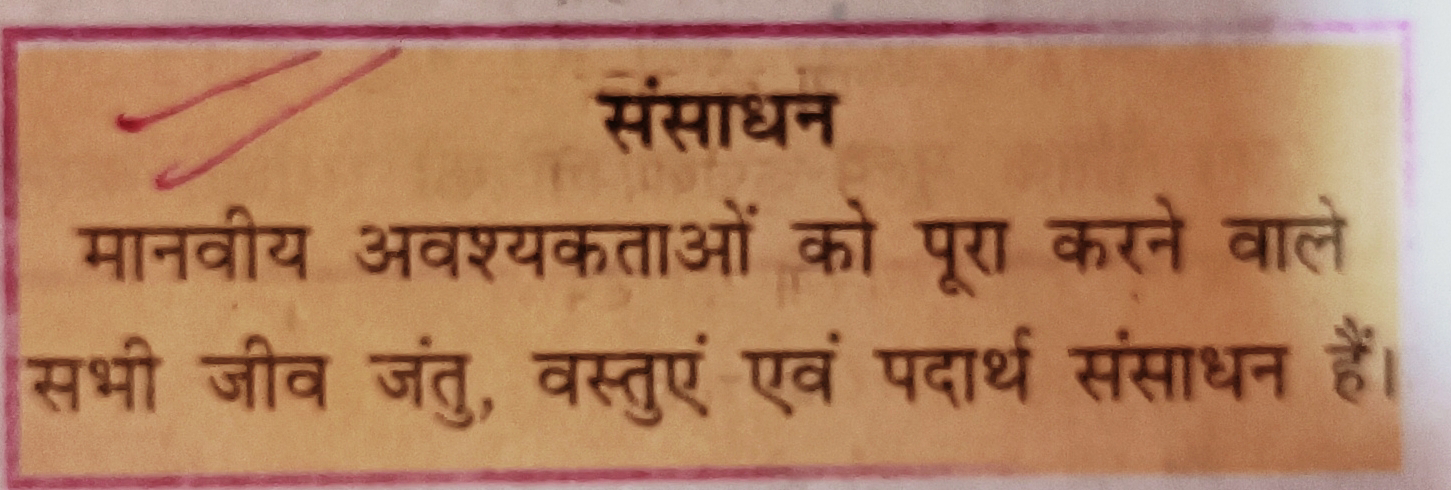 संसाधन
मानवीय अवश्यकताओं को पूरा करने वाले
सभी जीव जंतु, वस्तुएं एवं पदार्थ संसाधन हैं।